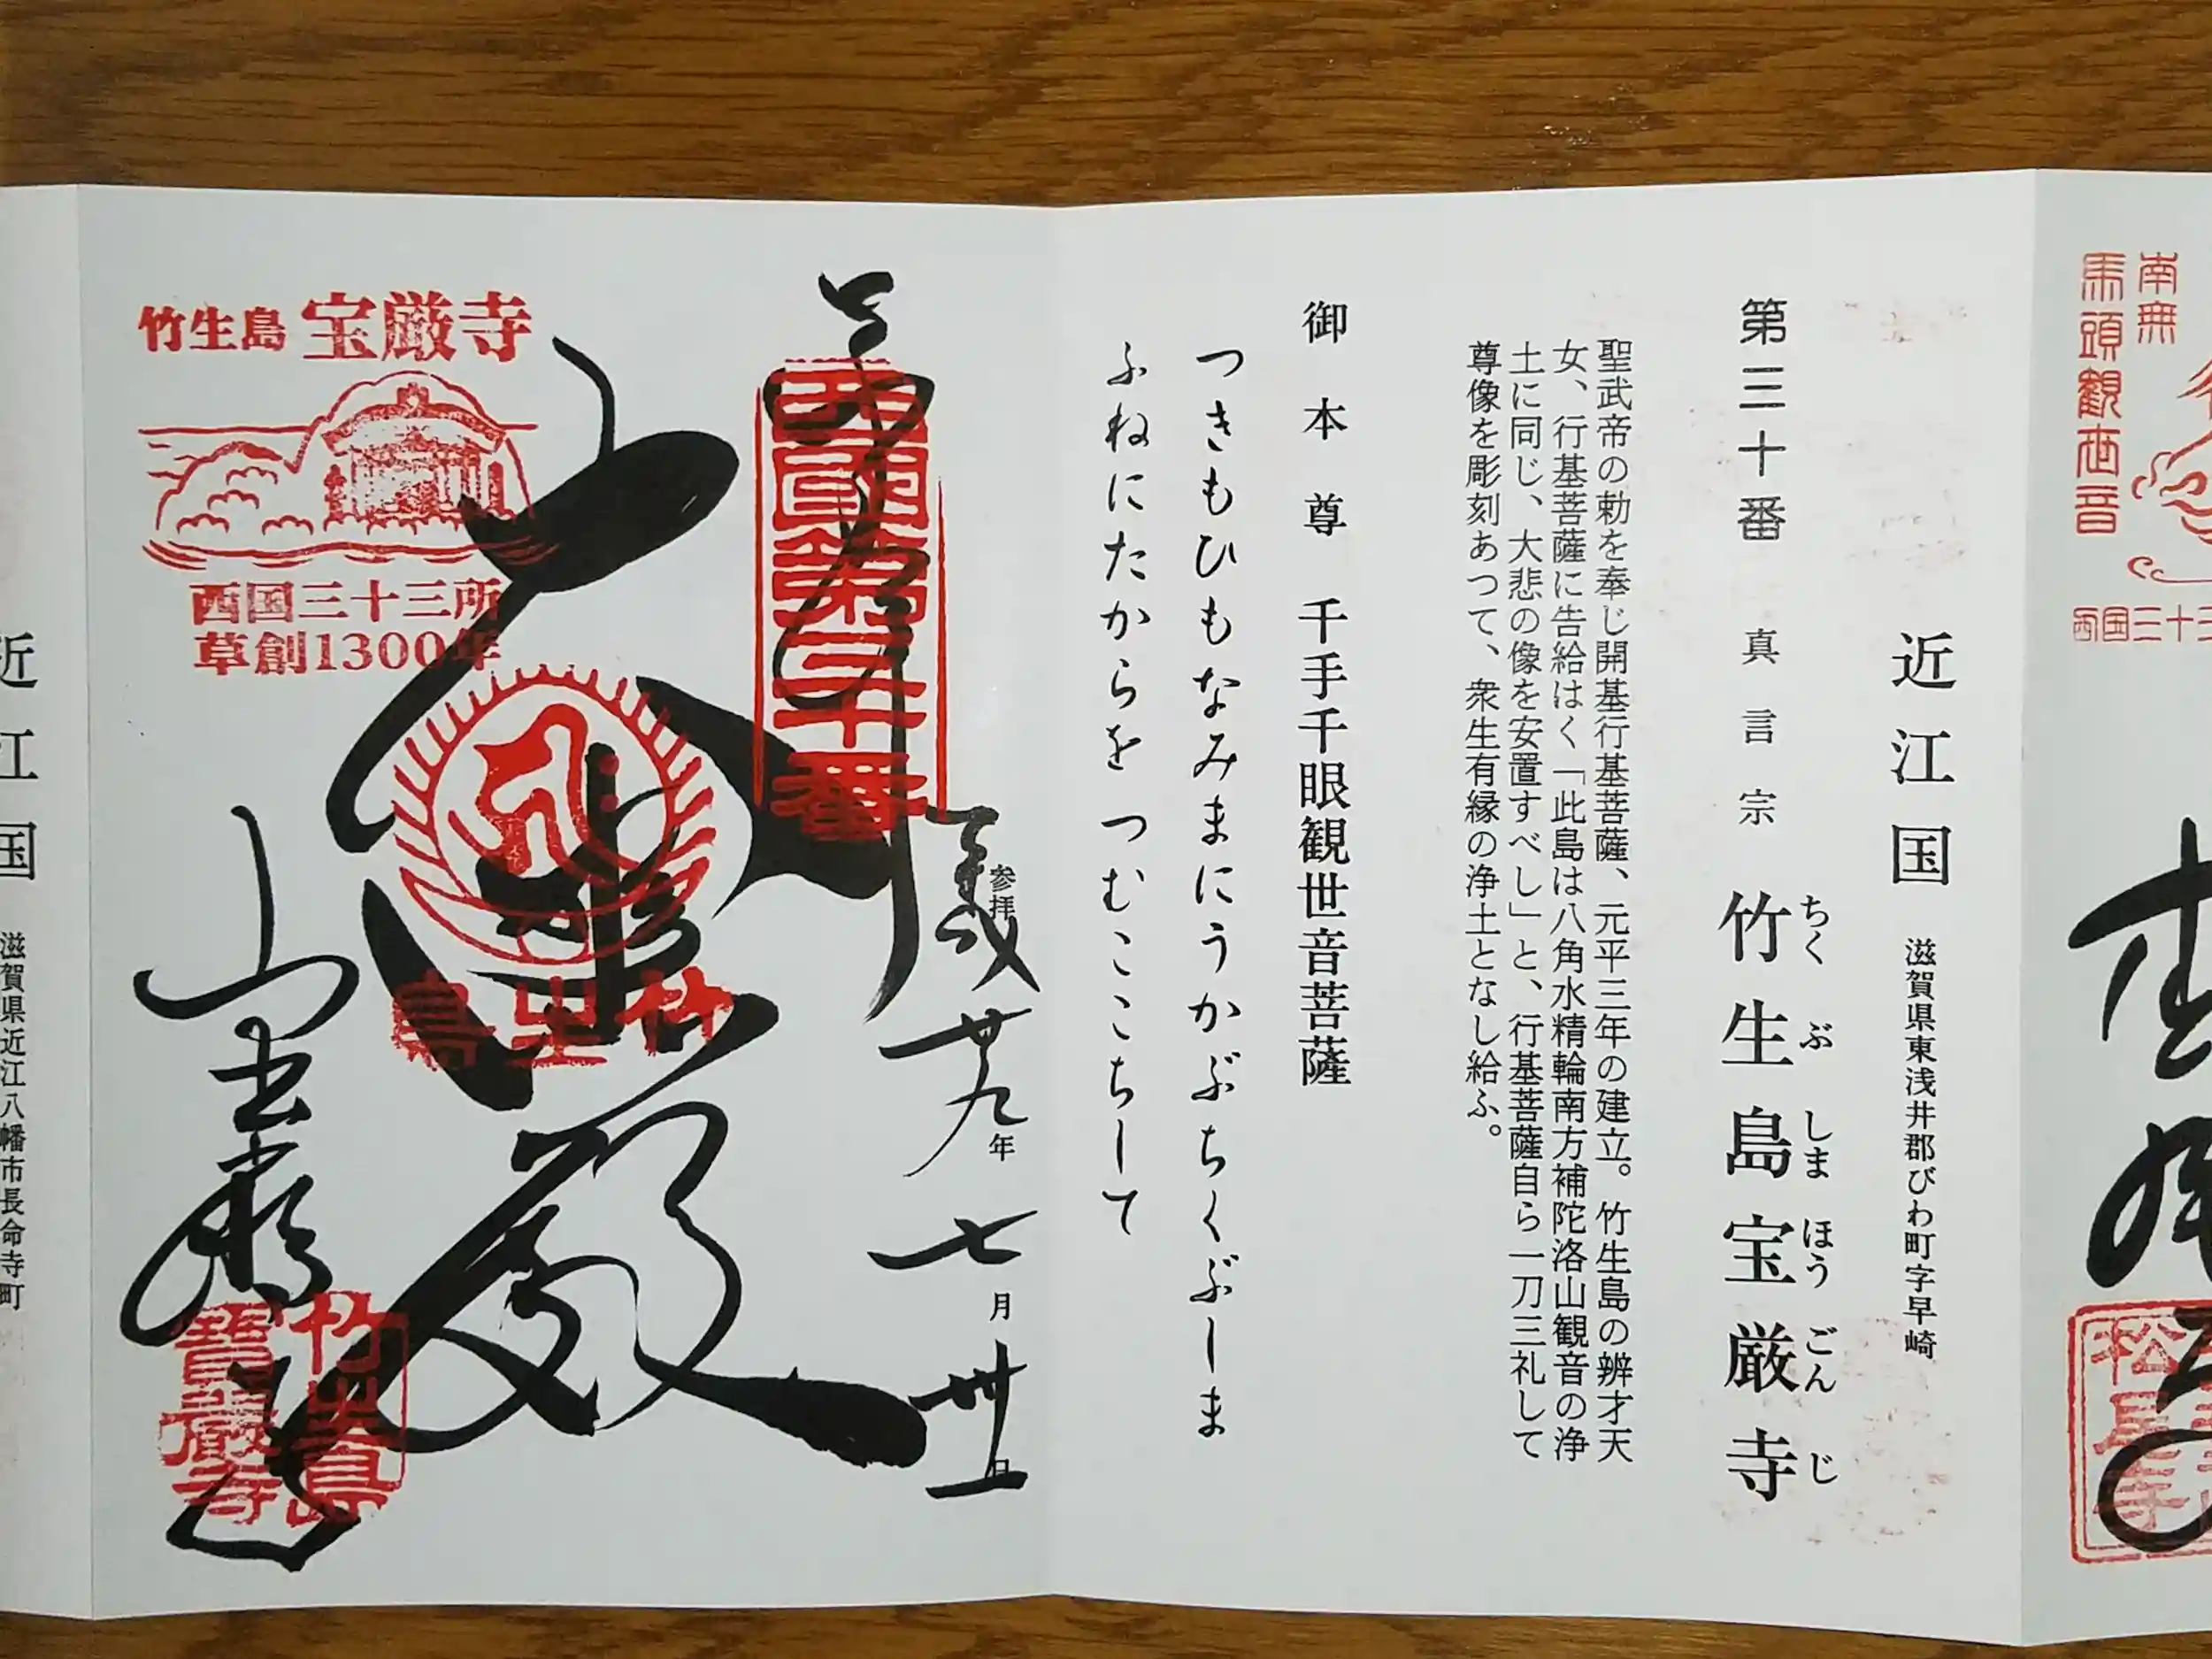 南無
馬頭観世音
西国三十三
近江国 滋賀県東浅井郡びわ町字早崎
第三十番 真言宗 竹生島宝厳寺
ちくぶしまほうごんじ
聖武帝の勅を奉じ開基行基菩薩、元平三年の建立。竹生島の辨才天
女、行基菩薩に告給はく「此島は八角水精輪南方補陀洛山観音の浄
土に同じ、大悲の像を安置すべし」と、行基菩薩自ら一刀三礼して
尊像を彫刻あつて、衆生有縁の浄土となし給ふ。
御本尊 千手千眼観世音菩薩
つきもひもなみまにうかぶちくぶしま
ふねにたからを つむここちして
参拝 平成廿九年七月卅一日
西国第三十番
大悲殿
竹生島
竹生島 宝厳寺
西国三十三所
草創1300年
竹生島
寶嚴寺
近江国 滋賀県近江八幡市長命寺町